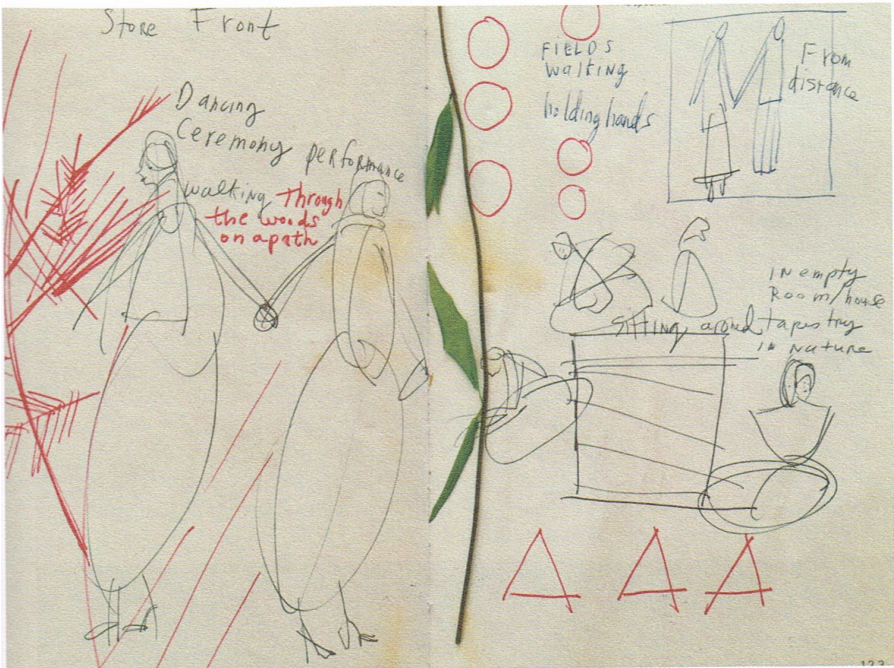 Store Front
Dancing
Ceremony performance
walking through
the woods
on a path
FIELDS
WALKING
holding hands
From
distance
IN empty
Room/house
sitting around tapestry
in NATURE